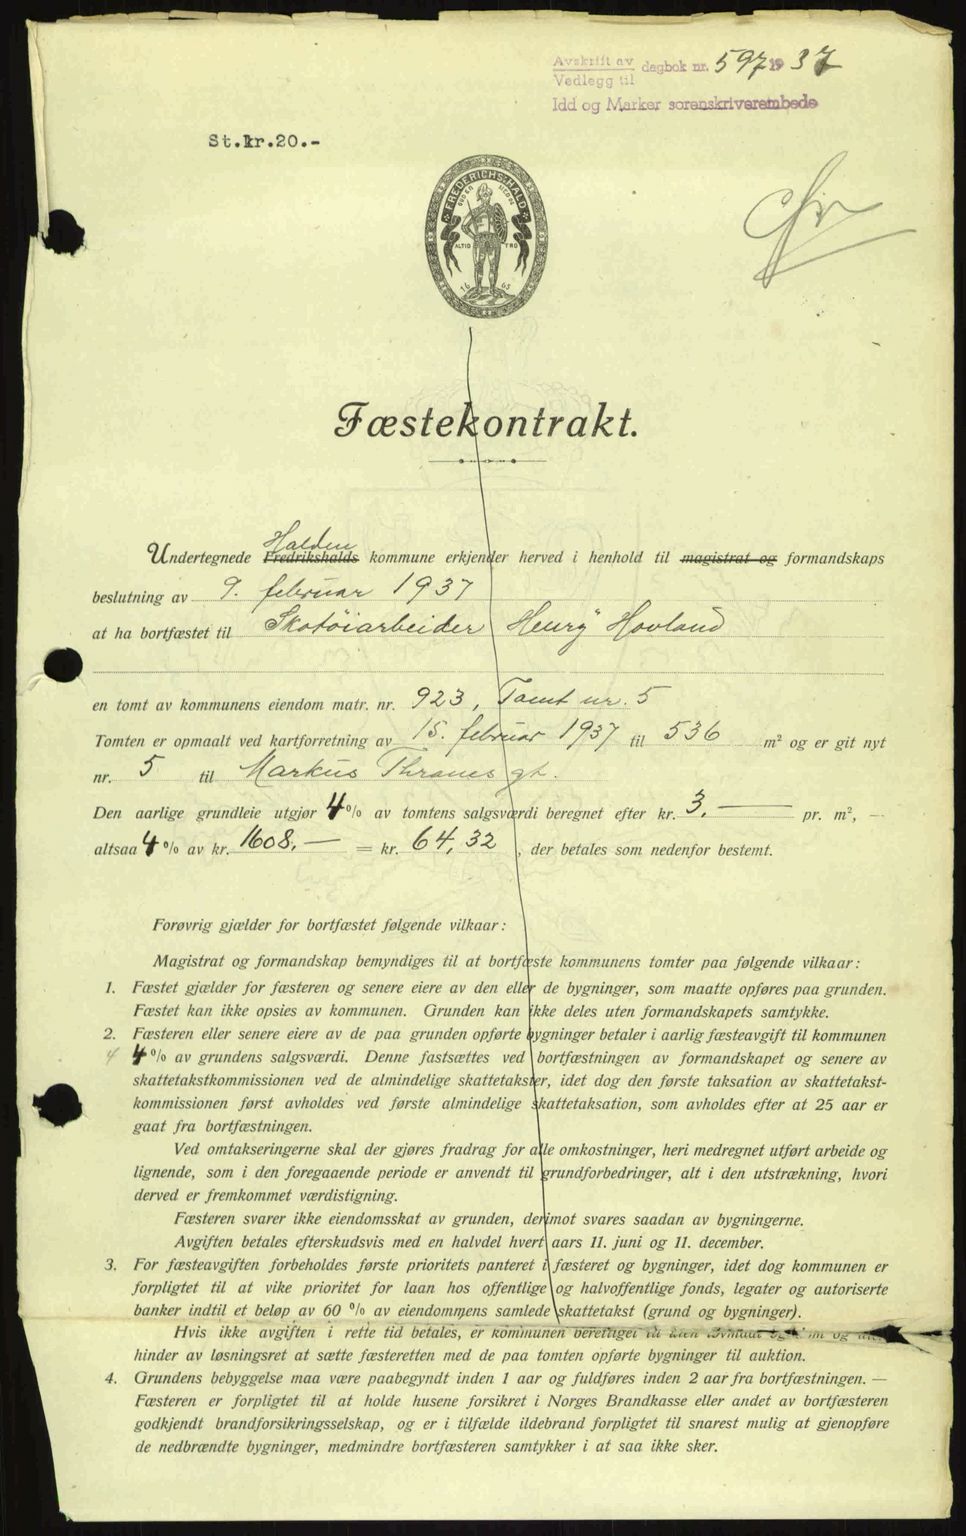 Avskrift av
Vedlegg til
dagbok nr. 597 1937
Idd og Marker sorenskriverembede
St.kr.20.-
FREDERICHSHALD
ALTID TRO
1665
Fæstekontrakt.
Halden
Undertegnede Fredrikshalds kommune erkjender herved i henhold til magistrat og formandskaps
beslutning av 9. februar 1937
at ha bortfæstet til Skotøiarbeider Henry Hovland
en tomt av kommunens eiendom matr. nr. 923, Tomt nr. 5
Tomten er opmaalt ved kartforretning av 15. februar 1937 til 536 m² og er git nyt
nr. 5 til Markus Thranes gt.
Den aarlige grundleie utgjør 4% av tomtens salgsværdi beregnet efter kr. 3,— pr. m², —
altsaa 4% av kr. 1608,— = kr. 64,32, der betales som nedenfor bestemt.
Forøvrig gjælder for bortfæstet følgende vilkaar:
Magistrat og formandskap bemyndiges til at bortfæste kommunens tomter paa følgende vilkaar:
1. Fæstet gjælder for fæsteren og senere eiere av den eller de bygninger, som maatte opføres paa grunden.
Fæstet kan ikke opsies av kommunen. Grunden kan ikke deles uten formandskapets samtykke.
2. Fæsteren eller senere eiere av de paa grunden opførte bygninger betaler i aarlig fæsteavgift til kommunen
4 4% av grundens salgsværdi. Denne fastsættes ved bortfæstningen av formandskapet og senere av
skattetakstkommissionen ved de almindelige skattetakster, idet dog den første taksation av skattetakst-
kommissionen først avholdes ved første almindelige skattetaksation, som avholdes efter at 25 aar er
gaat fra bortfæstningen.
Ved omtakseringerne skal der gjøres fradrag for alle omkostninger, heri medregnet utført arbeide og
lignende, som i den foregaaende periode er anvendt til grundforbedringer, alt i den utstrækning, hvori
derved er fremkommet værdistigning.
Fæsteren svarer ikke eiendomsskat av grunden, derimot svares saadan av bygningerne.
Avgiften betales efterskudsvis med en halvdel hvert aars 11. juni og 11. december.
3. For fæsteavgiften forbeholdes første prioritets panteret i fæsteret og bygninger, idet dog kommunen er
forpligtet til at vike prioritet for laan hos offentlige og halvoffentlige fonds, legater og autoriserte
banker indtil et beløp av 60 % av eiendommens samlede skattetakst (grund og bygninger).
Hvis ikke avgiften i rette tid betales, er kommunen berettiget til uten
hinder av løsningsret at sætte fæsteretten med de paa tomten opførte bygninger til auktion.
4. Grundens bebyggelse maa være paabegyndt inden 1 aar og fuldføres inden 2 aar fra bortfæstningen. —
Fæsteren er forpligtet til at holde husene forsikret i Norges Brandkasse eller andet av bortfæsteren
godkjendt brandforsikringsselskap, og er i tilfælde ildebrand forpligtet til snarest mulig at gjenopføre
de nedbrændte bygninger, medmindre bortfæsteren samtykker i at saa ikke sker.